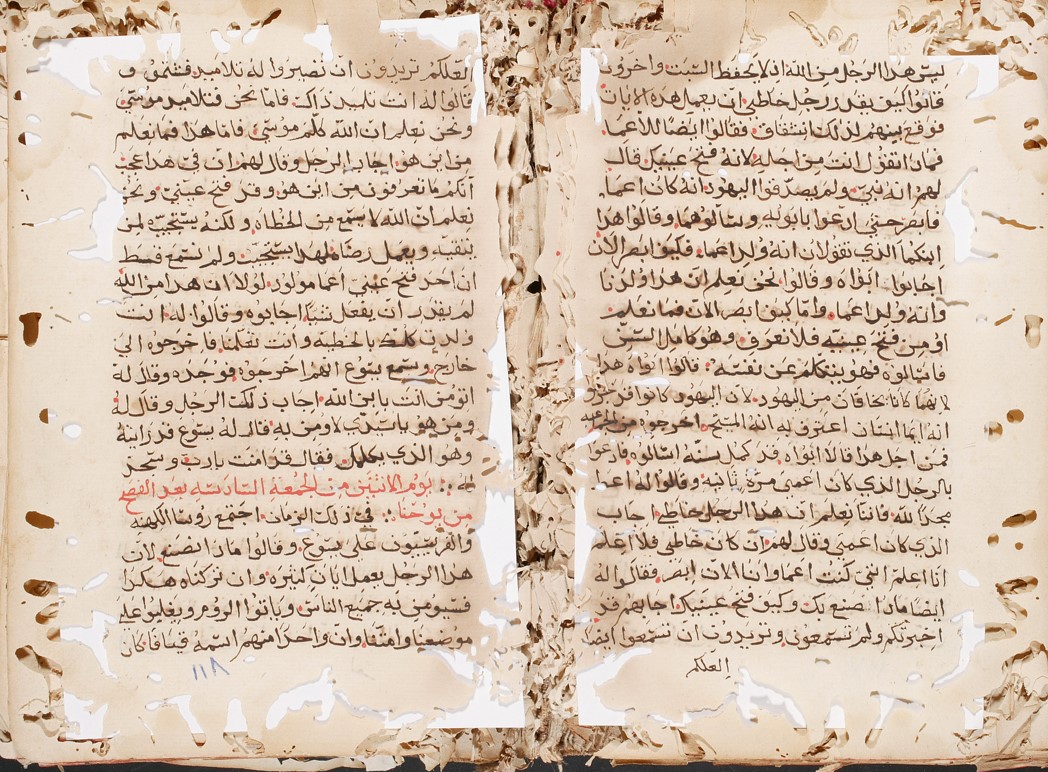 ليس هذا الرجل من الله انه لا يحفظ السبت واخرون
قالوا كيف يقدر رجل خاطى ان يعمل هذه الايات
فوقع بينهم لذلك انتقاق وقالوا ايضا للاعما
فماذا تقول انت من اجله لانه فتح عينيك قال
لهم انه نبى ولم يصدقوا اليهود انه كان اعما
فابصر حتى ادعوا بابويه وسالوهما وقالوا هذا
ابنكما الذي تقولان انه ولد اعما فكيف ابصر الان
اجابوا ابواه وقالوا نحن نعلم ان هذا ولدنا
وانه ولد اعما واما كيف ابصر الان فما نعلم
او من فتح عينيه فلا نعرف وهو كامل السن
فاسالوه فهو يتكلم عن نفسه قالوا ابواه هذا
لانهما كانا يخافان من اليهود لان اليهود كانوا قد
انه ايما انسان اعترف به انه المسيح اخرجوه من
فمن اجل هذا قالا ابواه قد كمل سنه اسالوه فادعوا
بالرجل الذي كان اعمى مرة ثانيه وقالوا له اعط
مجدا لله فاننا نعلم ان هذا الرجل خاطى اجاب
الذي كان اعمى وقال لهم ان كان خاطى فلا اعلم
انا اعلم انى كنت اعما وانا الان ابصر فقالوا له
ايضا ماذا صنع بك وكيف فتح عينيك اجابهم قد
اخبرتكم ولم تستمعونى وتريدون ان تستمعوا ايضا
العلكم
العلكم تريدون ان تصيروا له تلاميد فشتموه و
قالوا له انت تلميد ذاك فاما نحن فتلاميد موسى
ونحن نعلم ان الله كلم موسى فاما هذا فما نعلم
من اين هو اجاب الرجل وقال لهم ان في هذا عجب
انكم ما تعرفون من اين هو وقد فتح عيني ونحن
نعلم ان الله لا يسمع من الخطاه ولكنه يستجيب لمن
يتقيه ويعمل رضاه لهذا يستجيب ولم نسمع قط
ان احد فتح عيني اعما مولود لولا ان هذا من الله
لم يقدر ان يفعل شيا اجابوه وقالوا له انت
ولدت كلك بالخطيه وانت تعلمنا فاخرجوه الي
خارج وسمع يسوع انهم اخرجوه فوجده وقال له
اتومن انت بابن الله اجاب ذلك الرجل وقال له
ومن هو ياسيدي لاومن به قال له يسوع قد رايته
وهو الذي يكلمك فقال قد امنت يارب وسجد
له يوم الاثنين من الجمعه السادسه بعد الفصح
من يوحنا في ذلك الزمان اجتمع روسا الكهنه
والفريسيون على يسوع وقالوا ماذا نصنع لان
هذا الرجل يعمل ايات كثيره وان تركناه هكذا
فسيومن به جميع الناس وياتوا الروم ويغلبوا على
موضعنا وامتنا وان واحدا منهم اسمه قيافا كان
١١٨